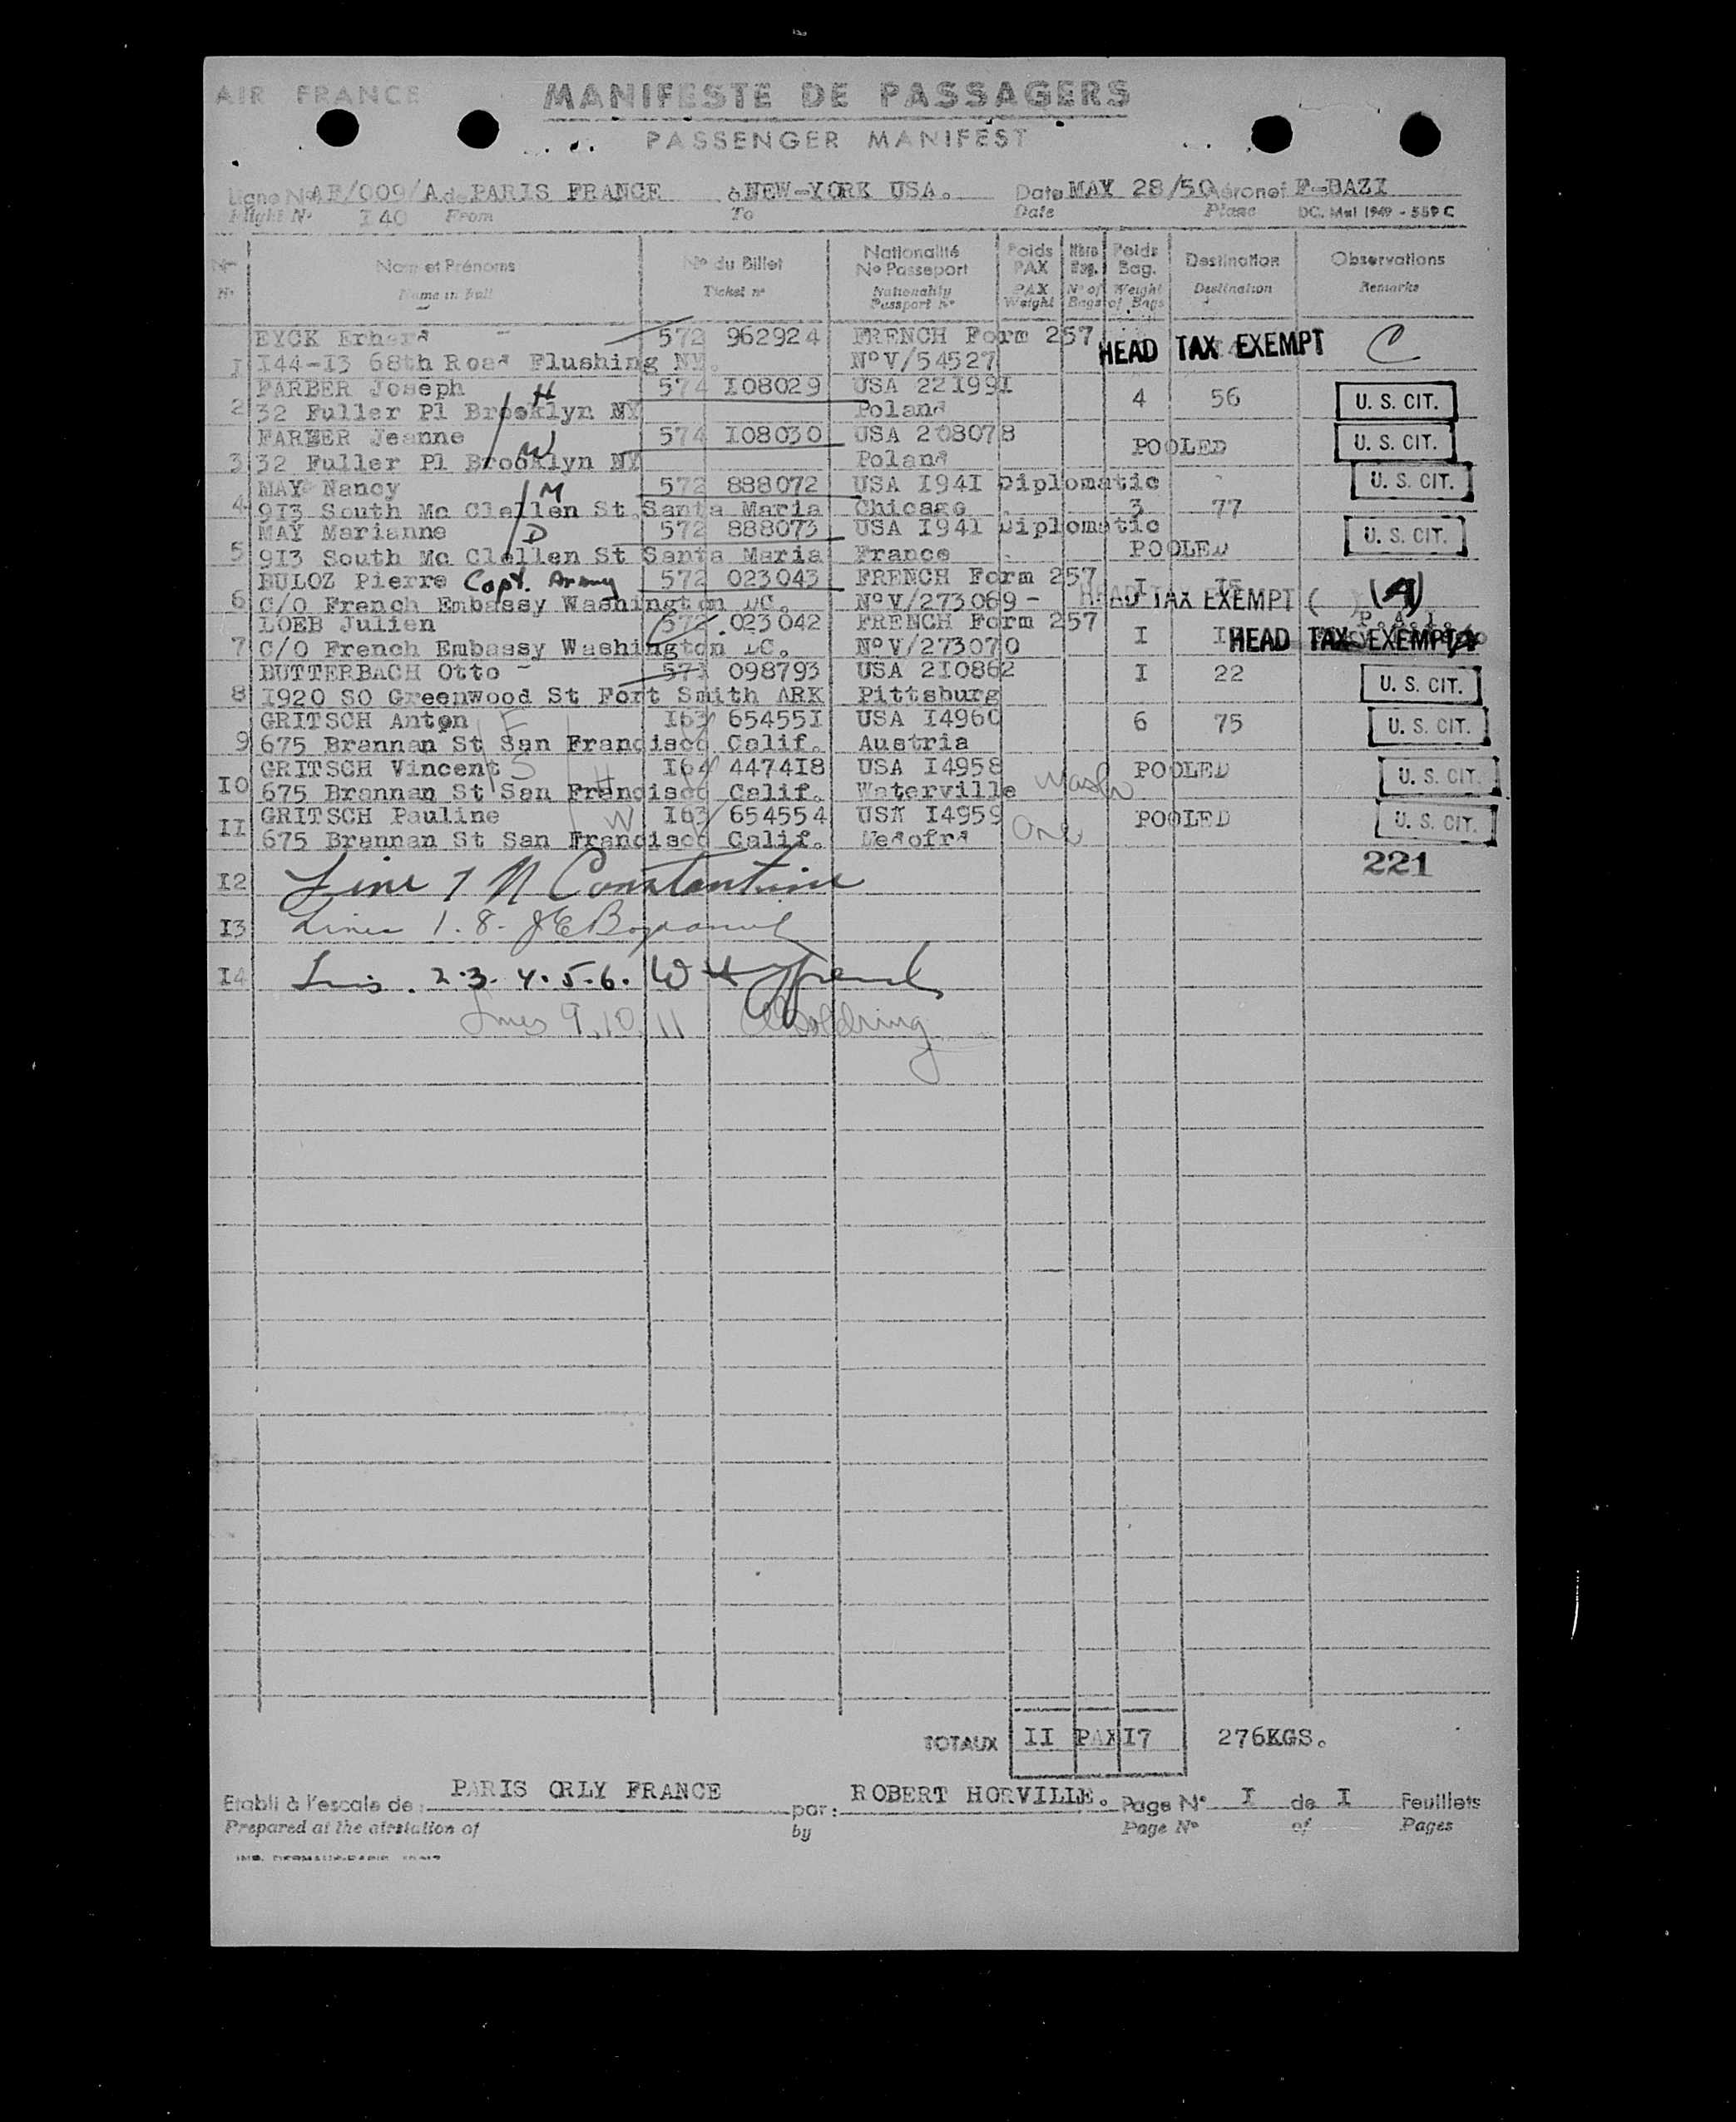 AIR FRANCE
MANIFESTE DE PASSAGERS
PASSENGER MANIFEST
Ligne No AF/009/A de PARIS FRANCE à NEW-YORK USA. Date MAY 28/50 Aéronef F-BAZI
Flight No I40 From To Date Plane DC. Mai 1949 - 559 C
No Nom et Prénoms No du Billet Nationalité No Passeport Poids PAX Nbre Bag. Poids Bag. Destination Observations
No Name in full Ticket no Nationality Passport no PAX Weight No of Bags Weight of Bags Destination Remarks
EYCK Erhard 572 962924 FRENCH Form 257 HEAD TAX EXEMPT C
I I44-I3 68th Road Flushing NY. No V/54527
FARBER Joseph H 574 I08029 USA 22I99I 4 56 U. S. CIT.
2 32 Fuller Pl Brooklyn NY Poland
FARBER Jeanne W 574 I08030 USA 208078 POOLED U. S. CIT.
3 32 Fuller Pl Brooklyn NY Poland
MAY Nancy M 572 888072 USA I94I Diplomatic U. S. CIT.
4 9I3 South Mc Clellen St Santa Maria Chicago 3 77
MAY Marianne D 572 888073 USA I94I Diplomatic U. S. CIT.
5 9I3 South Mc Clellen St Santa Maria France POOLED
BULOZ Pierre Capt. Army 572 023043 FRENCH Form 257 I I5 (A)
6 C/O French Embassy Washington DC. No V/273069 - HEAD TAX EXEMPT ( )
LOEB Julien 572 023042 FRENCH Form 257 I HEAD TAX EXEMPT
7 C/O French Embassy Washington DC. No V/273070
BUTTERBACH Otto 571 098793 USA 2I0862 I 22 U. S. CIT.
8 I920 SO Greenwood St Fort Smith ARK Pittsburg
GRITSCH Anton F I63 65455I USA I4960 6 75 U. S. CIT.
9 675 Brannan St San Francisco Calif. Austria
GRITSCH Vincent S H I64 4474I8 USA I4958 POOLED U. S. CIT.
I0 675 Brannan St San Francisco Calif. Waterville Wash
GRITSCH Pauline W I63 654554 USA I4959 POOLED U. S. CIT.
II 675 Brannan St San Francisco Calif. Medofrd Ore
221
I2 Line 7 N Constantine
I3 Lines 1. 8.
I4 Lns. 2.3. 4.5.6.
Lines 9, 10, 11
TOTAUX II PAX I7 276KGS.
Etabli à l'escale de : PARIS ORLY FRANCE par : ROBERT HORVILLE. Page No I de I Feuillets
Prepared at the airstation of by Page No of Pages